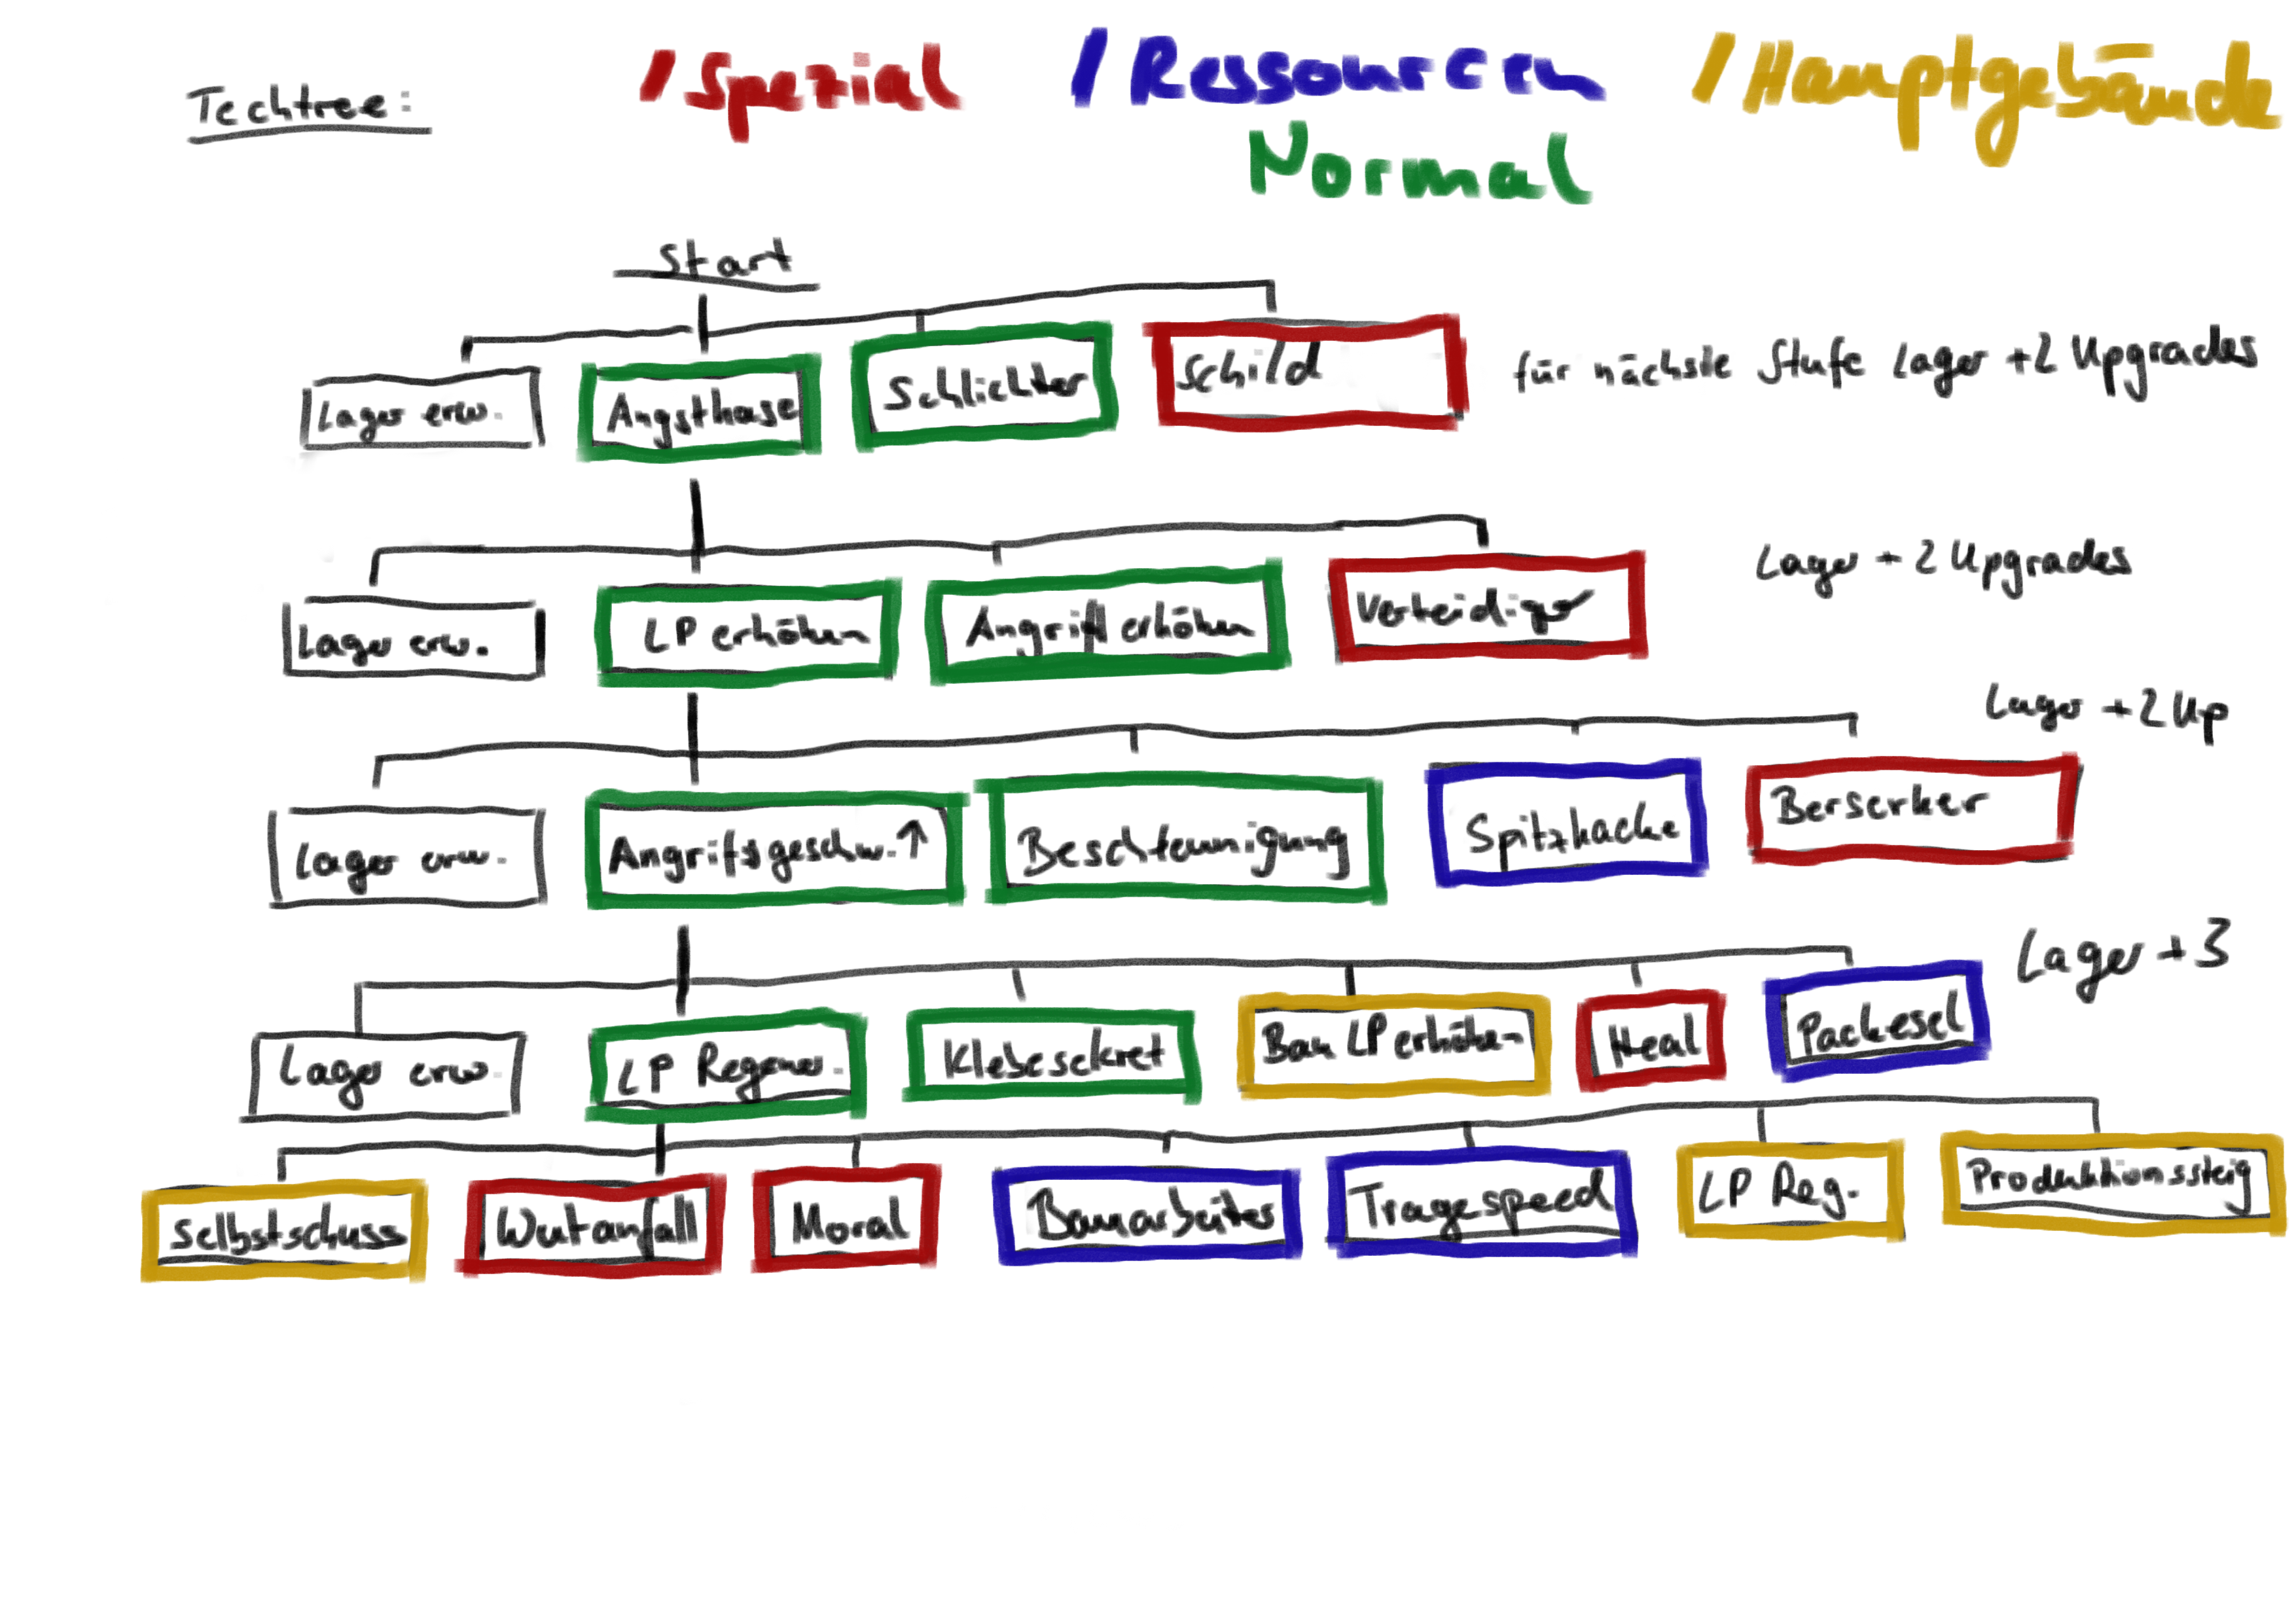 Techtree:
/ Spezial / Ressourcen / Hauptgebäude
Normal
Start
Lager erw. Angsthase Schlichter Schild für nächste Stufe Lager + 2 Upgrades
Lager + 2 Upgrades
Lager erw. LP erhöhen Angriff erhöhen Verteidiger
Lager + 2 Up
Lager erw. Angriffsgeschw. ↑ Beschleunigung Spitzhacke Berserker
Lager + 3
Lager erw. LP Regener. Klebesekret Bau LP erhöhen Heal Packesel
Selbstschuss Wutanfall Moral Bauarbeiter Tragespeed LP Reg. Produktionssteig